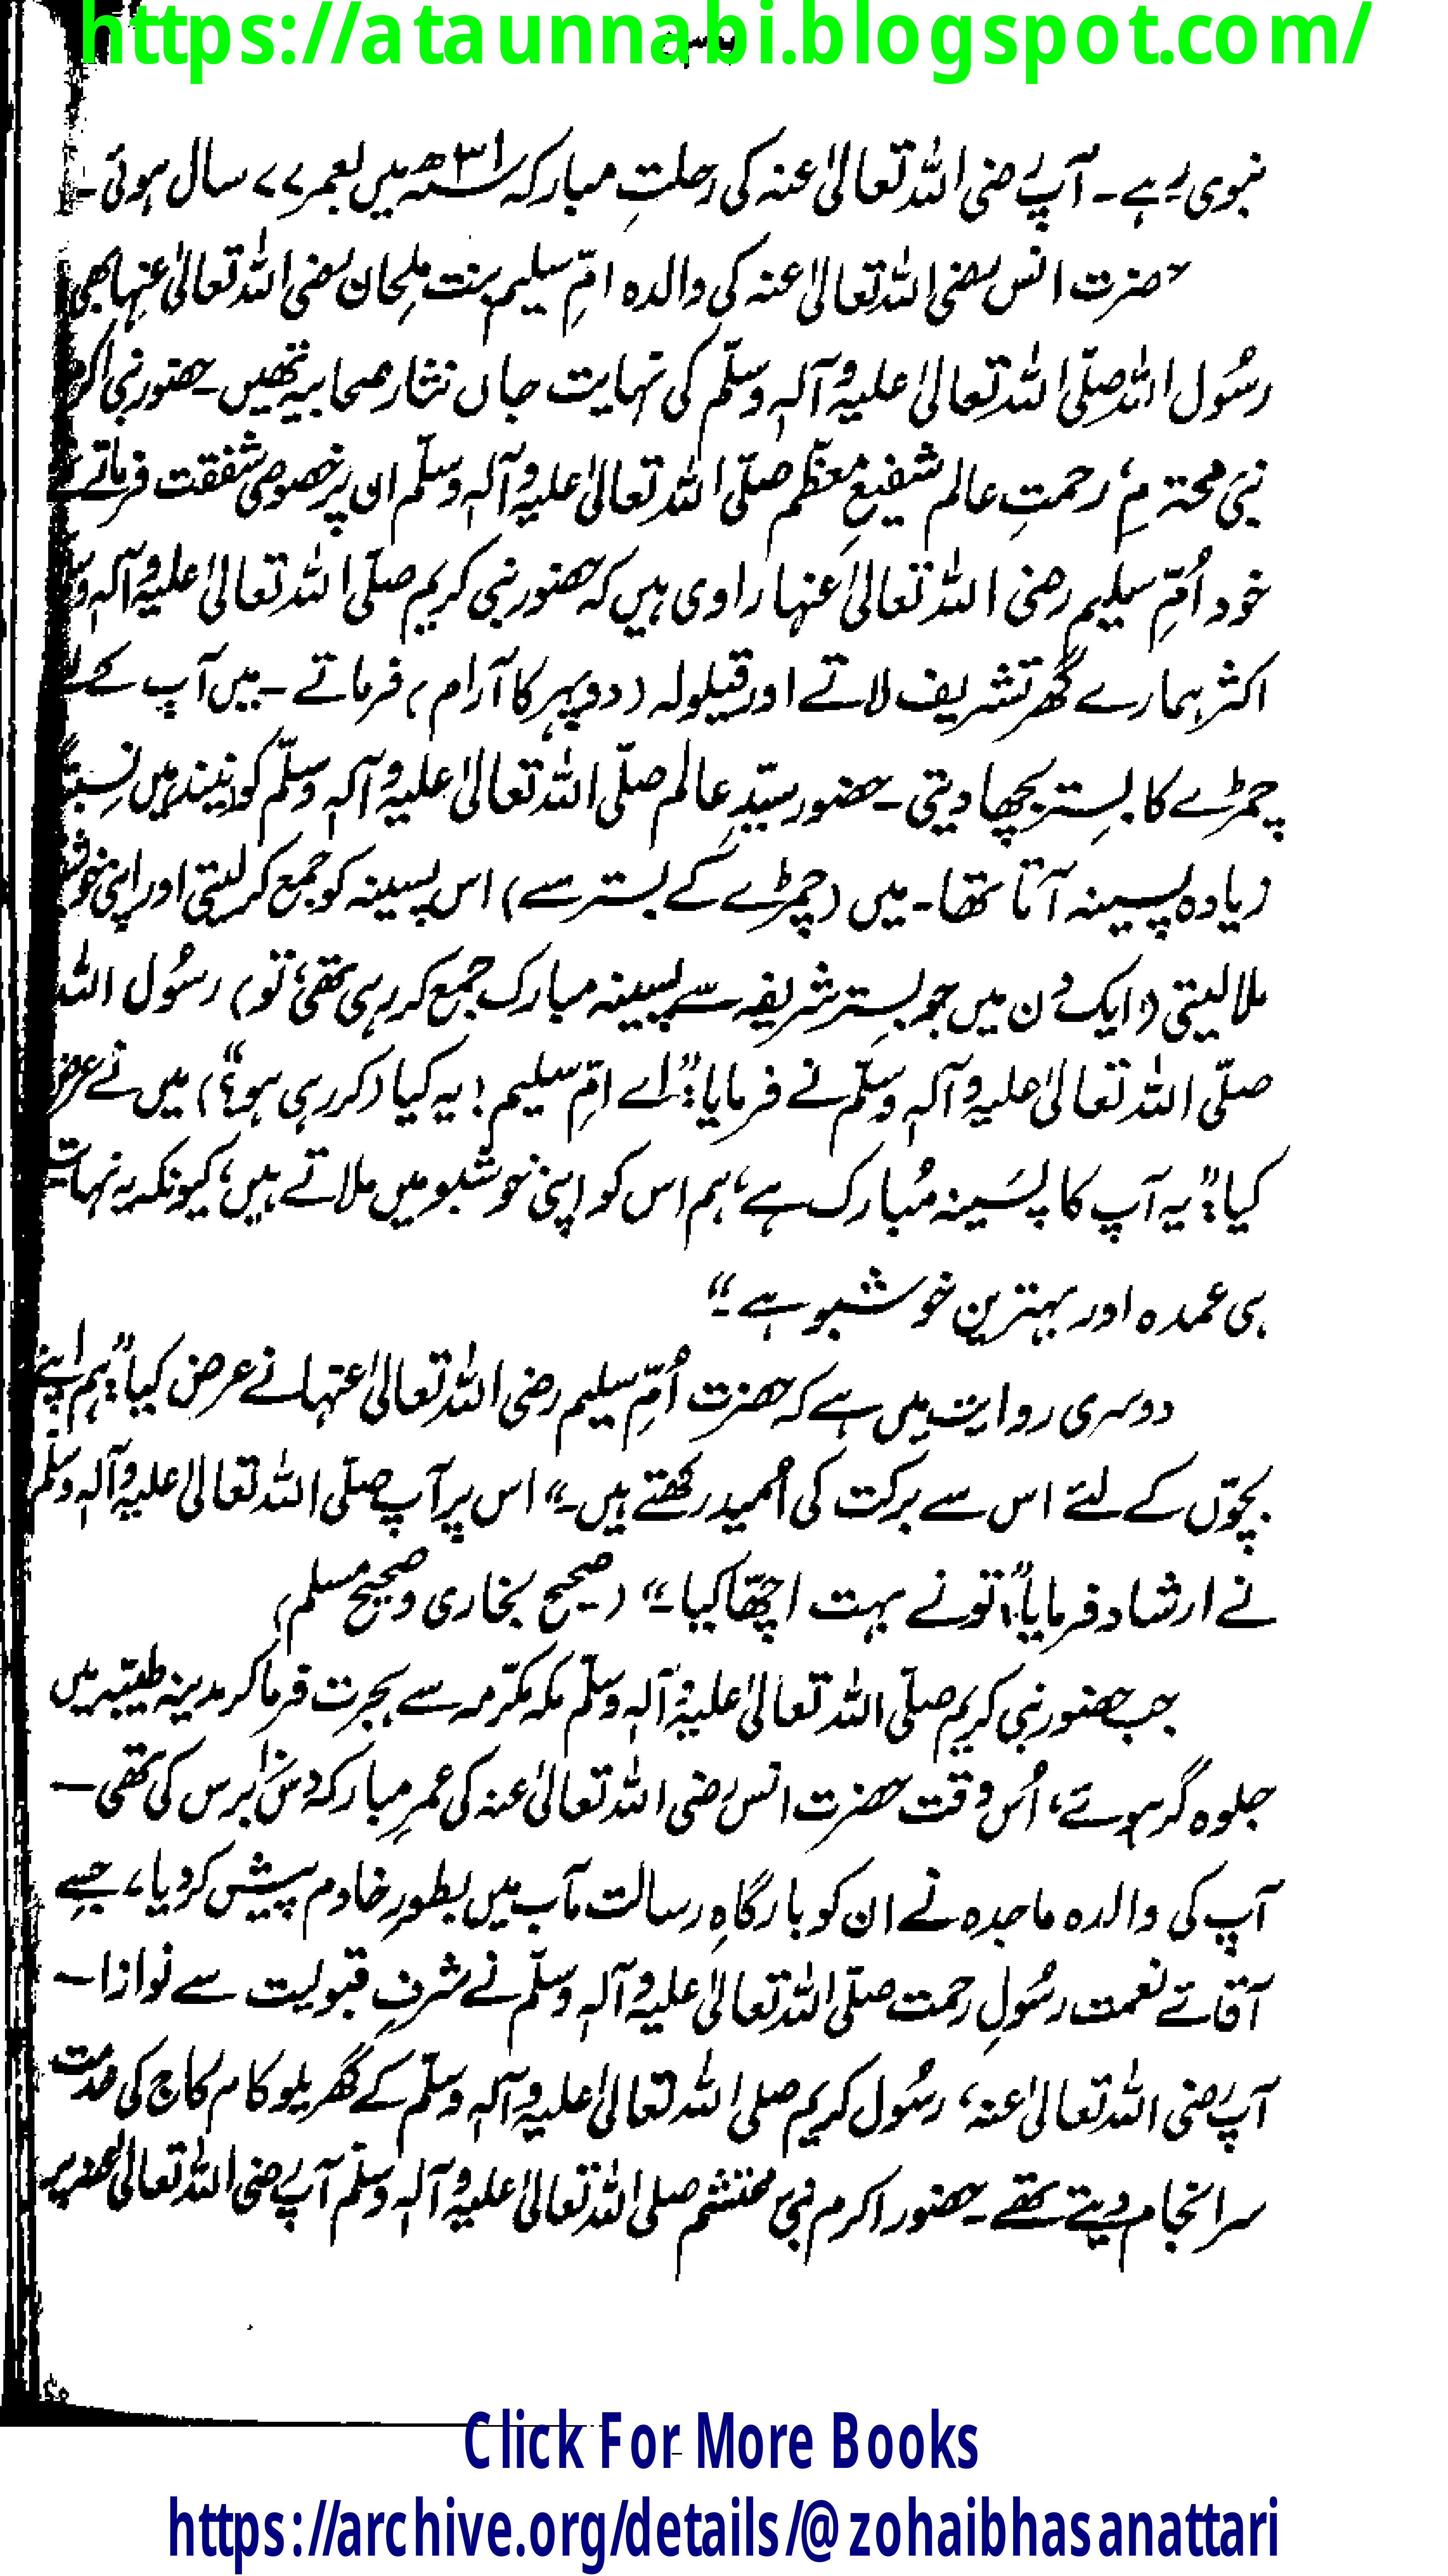 https://ataunnabi.blogspot.com/
نبوی رہے۔ آپ رضی اللہ تعالیٰ عنہ کی رحلتِ مبارکہ ۳۱ھ میں بعمر ۷۷ سال ہوئی۔
حضرت انس رضی اللہ تعالیٰ عنہ کی والدہ امِّ سلیم بنت مِلحان رضی اللہ تعالیٰ عنہا بھی
رسُول اللہ صلّی اللہ تعالیٰ علیہ وآلہٖ وسلّم کی نہایت جاں نثار صحابیہ تھیں۔ حضور نبی اکرم
نبیٔ محترم، رحمتِ عالم شفیعِ معظّم صلّی اللہ تعالیٰ علیہ وآلہٖ وسلّم ان پر خصوصی شفقت فرماتے
خود اُمِّ سلیم رضی اللہ تعالیٰ عنہا راوی ہیں کہ حضور نبی کریم صلّی اللہ تعالیٰ علیہ وآلہٖ
اکثر ہمارے گھر تشریف لاتے اور قیلولہ (دوپہر کا آرام) فرماتے۔ میں آپ کے لئے
چمڑے کا بسِتر بچھا دیتی۔ حضور سیّدِ عالم صلّی اللہ تعالیٰ علیہ وآلہٖ وسلّم کو نیند میں نِسبتاً
زیادہ پسینہ آتا تھا۔ میں (چمڑے کے بستر سے) اس پسینہ کو جمع کر لیتی اور اپنی
ملا لیتی (ایک دن میں جو بسِتر شریف سے پسینہ مبارک جمع کر رہی تھی، تو) رسُول اللہ
صلّی اللہ تعالیٰ علیہ وآلہٖ وسلّم نے فرمایا: ”اے امِّ سلیم! یہ کیا (کر رہی ہو؟“) میں نے عرض
کیا: ”یہ آپ کا پسَینہ مُبارک ہے، ہم اس کو اپنی خوشبو میں ملاتے ہیں، کیونکہ یہ نہایت
ہی عمدہ اور بہترین خوشبو ہے۔“
دوسری روایت میں ہے کہ حضرت اُمِّ سلیم رضی اللہ تعالیٰ عنہا نے عرض کیا: ”ہم اپنے
بچّوں کے لئے اس سے برکت کی اُمید رکھتے ہیں۔“ اس پر آپ صلّی اللہ تعالیٰ علیہ وآلہٖ وسلّم
نے ارشاد فرمایا: ”تو نے بہت اچّھا کیا۔“ (صحیح بخاری و صحیح مسلم)
جب حضور نبی کریم صلّی اللہ تعالیٰ علیہ وآلہٖ وسلّم مکہ مکرّمہ سے ہجرت فرما کر مدینہ طیّبہ میں
جلوہ گر ہوئے، اُس وقت حضرت انس رضی اللہ تعالیٰ عنہ کی عمرِ مبارکہ دس برس کی تھی۔
آپ کی والدہ ماجدہ نے ان کو بارگاہِ رسالت مآب میں بطورِ خادم پیش کر دیا، جسِے
آقائے نعمت رسُولِ رحمت صلّی اللہ تعالیٰ علیہ وآلہٖ وسلّم نے شرفِ قبولیت سے نوازا۔
آپ رضی اللہ تعالیٰ عنہ، رسُول کریم صلی اللہ تعالیٰ علیہ وآلہٖ وسلّم کے گھریلو کام کاج کی خدمت
سرانجام دیتے تھے۔ حضور اکرم نبیٔ محتشم صلی اللہ تعالیٰ علیہ وآلہٖ وسلّم آپ رضی اللہ تعالیٰ عنہ پر
Click For More Books
https://archive.org/details/@zohaibhasanattari